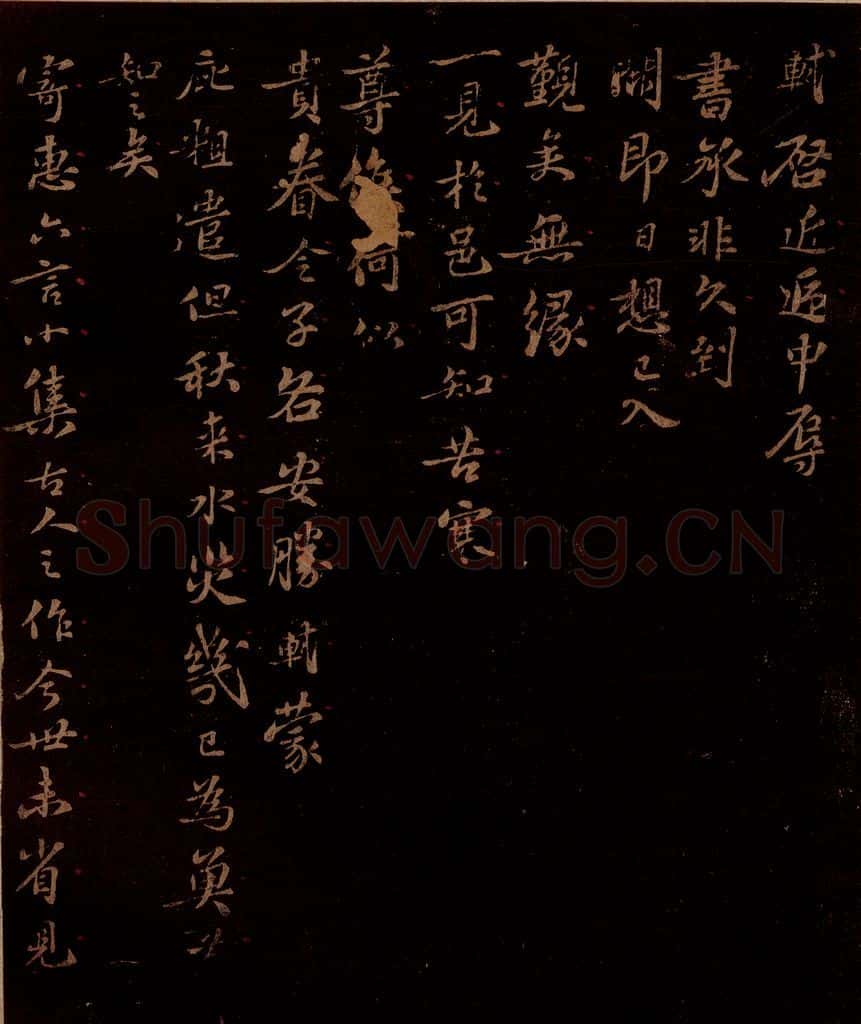 軾啓近遞中辱
書承非久到
闕即日想已入
覲矣無緣
一見於邑可知苦寒
尊 何似
貴眷令子各安勝軾蒙
庇粗遣但秋来水災幾已為魚必
知之矣
寄惠六言小集古人之作今世未省見
Shufawang.CN